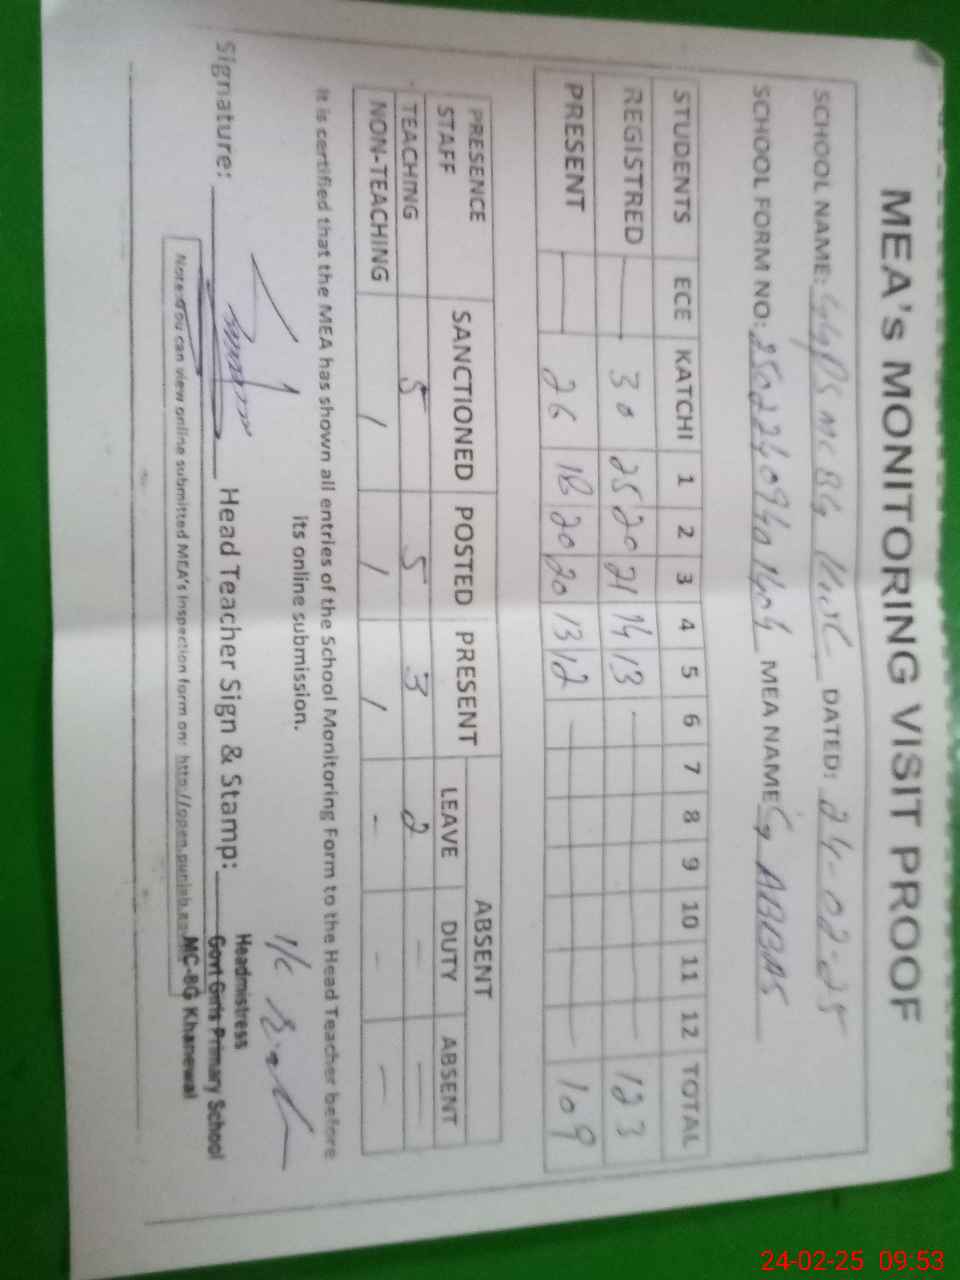 MEA's MONITORING VISIT PROOF
SCHOOL NAME: GGPS MC 8G KWL DATED: 24-02-25
SCHOOL FORM NO: MEA NAME G ABBAS
STUDENTS ECE KATCHI 1 2 3 4 5 6 7 8 9 10 11 12 TOTAL
REGISTRED — 30 25 20 21 14 13 — 123
PRESENT — 26 18 20 20 13 12 — 109
PRESENCE STAFF SANCTIONED POSTED PRESENT ABSENT
LEAVE DUTY ABSENT
TEACHING 5 5 3 2 — —
NON-TEACHING 1 1 1 - - —
It is certified that the MEA has shown all entries of the School Monitoring Form to the Head Teacher before
its online submission.
Signature: Head Teacher Sign & Stamp:
I/C
Headmistress
Govt Girls Primary School
MC-8G Khanewal
Note: You can view online submitted MEA's inspection form on: http://open.punjab
24-02-25 09:53